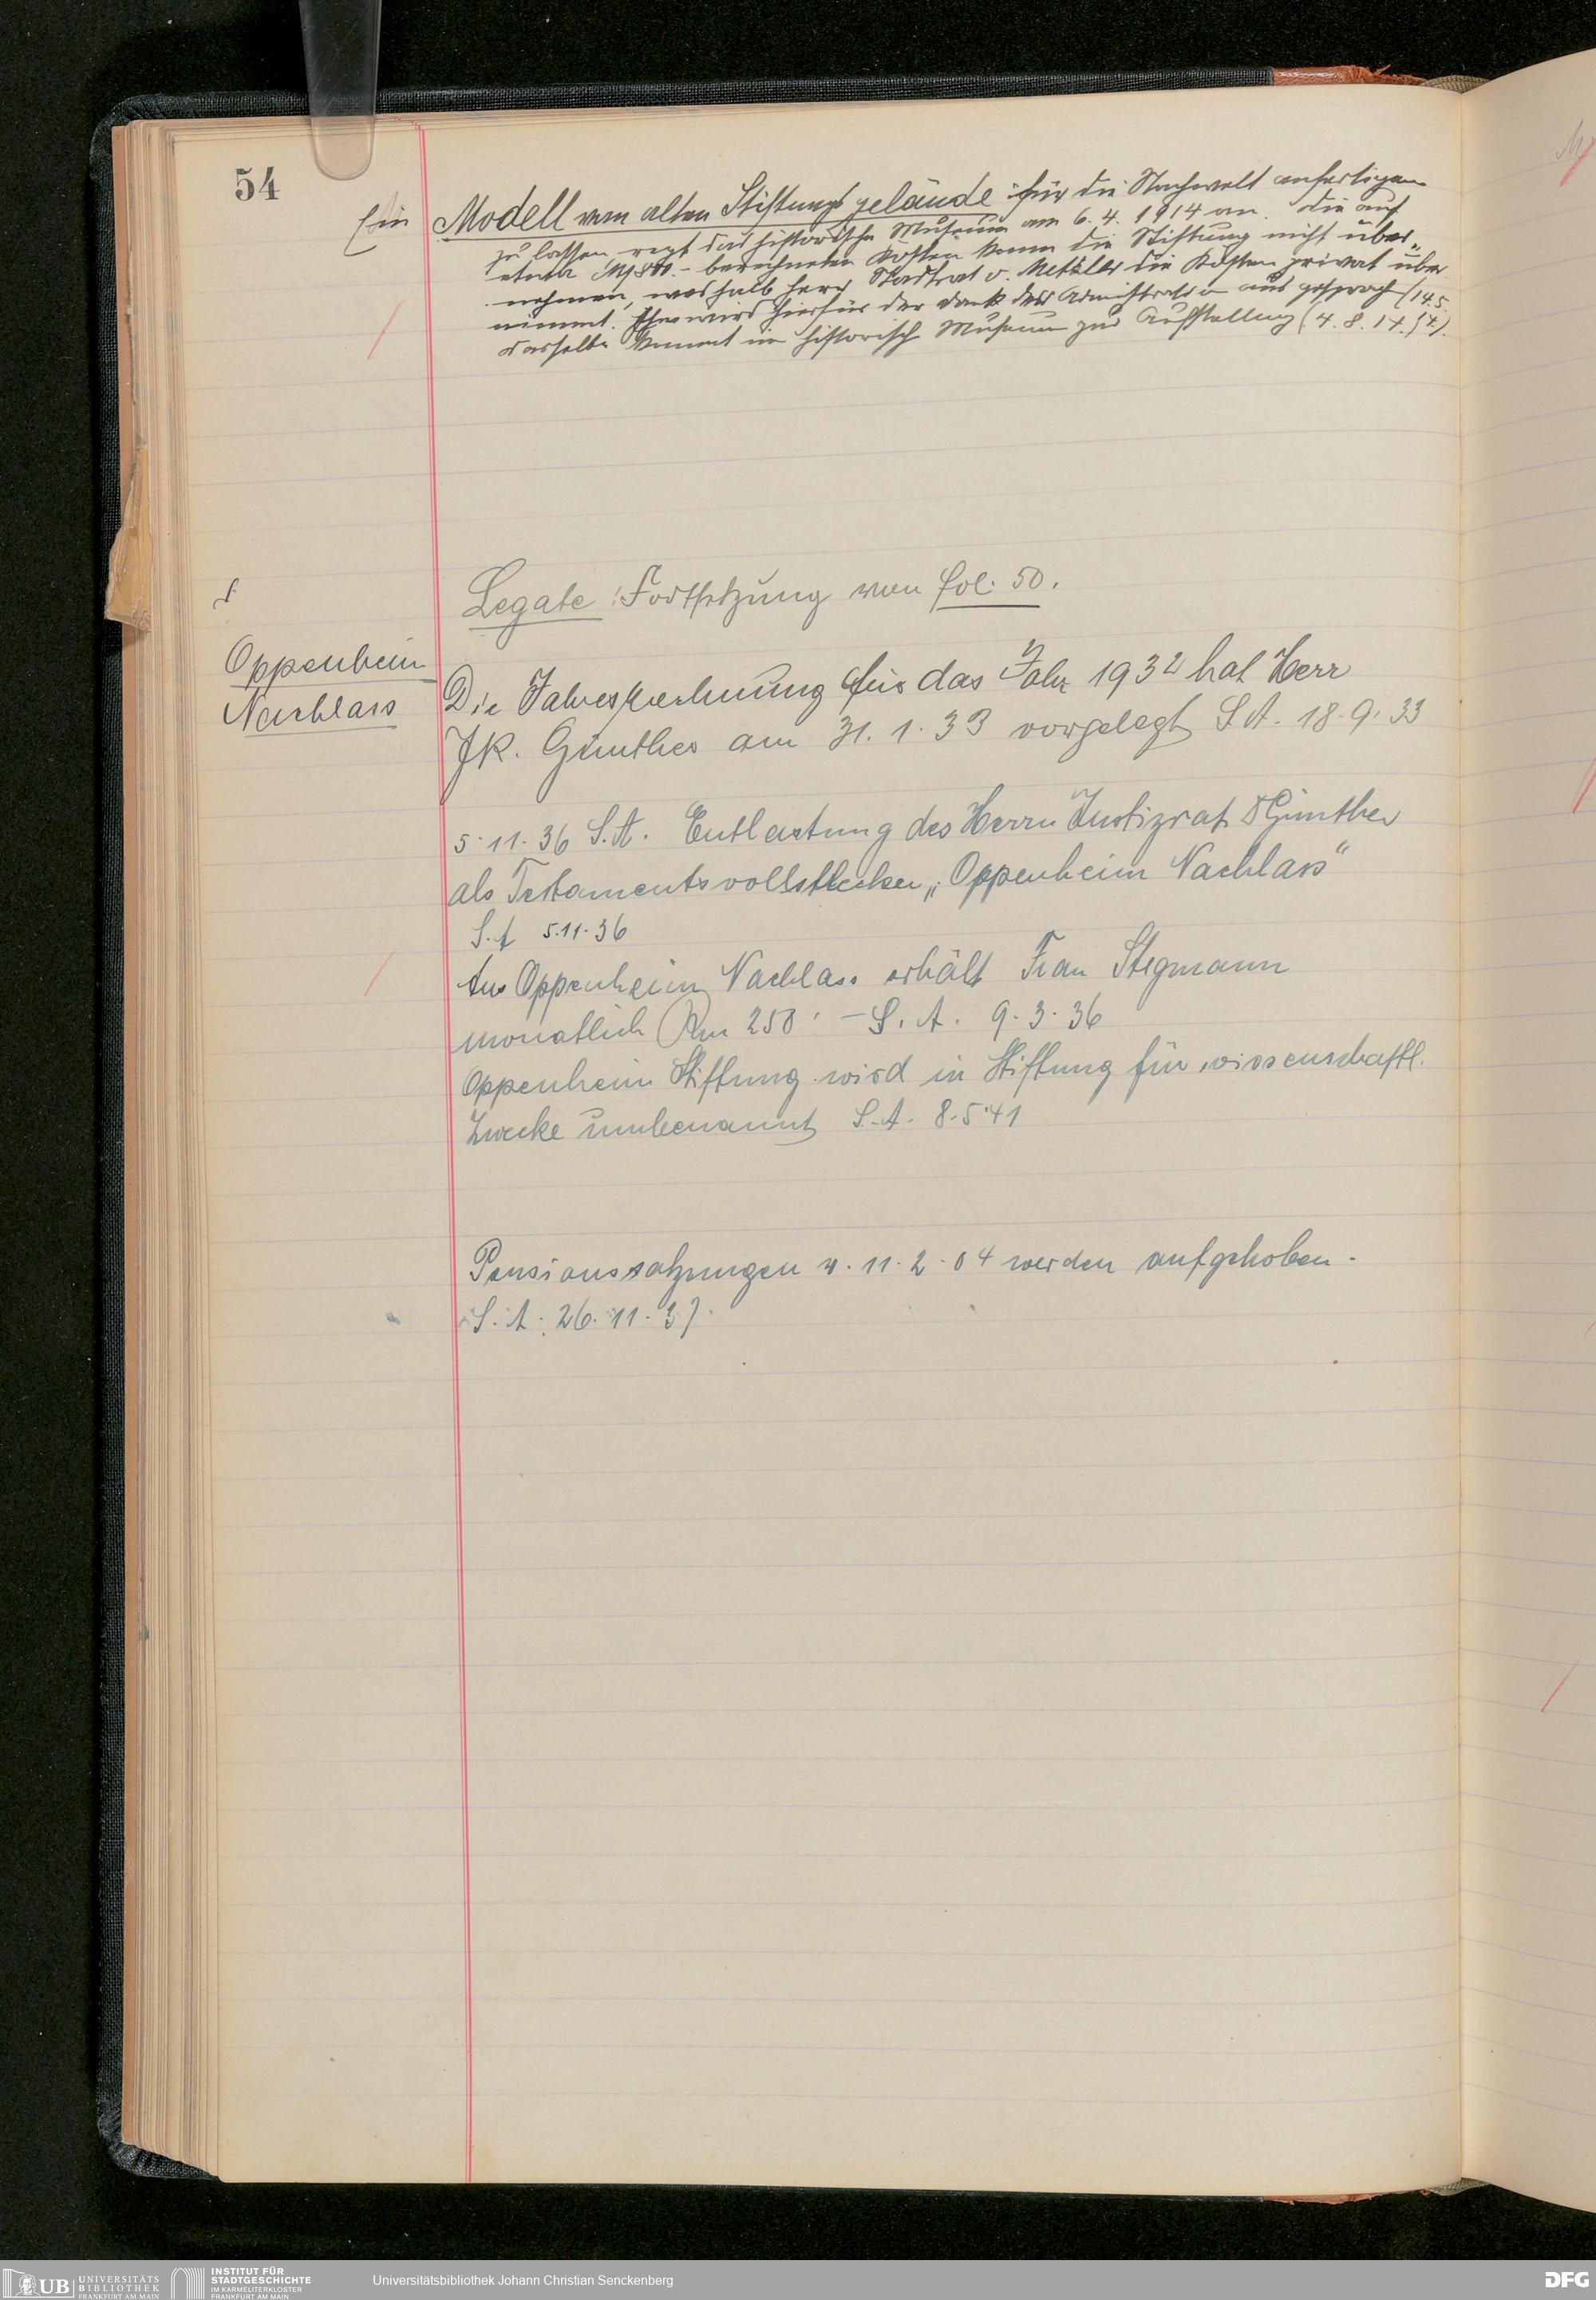 54
Ein Modell vom alten Stiftungsgelände für die Nachwelt anfertigen
zu lassen, regt das historische Museum am 6. 4. 1914 an. Die auf
etwa berechneten Kosten kann die Stiftung nicht über„
nehmen, weshalb Herr Stadtrat v. Metzler die Kosten privat über
nimmt. Ihm wird hierfür der Dank der Administration ausgesprochen (14.5.
14).
Dasselbe kommt im historisch Museum zur Aufstellung (4. 8. 14.)
Legate: Fortsetzung von fol. 50.
Oppenheim
Nachlass
Die Jahresrechnung für das Jahr 1932 hat Herr
JR. Günther am 31. 1. 33 vorgelegt S. A. 18. 9. 33
5. 11. 36 S. A. Entlastung des Herrn Justizrat Günther
als Testamentsvollstrecker „Oppenheim Nachlass“
S. A 5. 11. 36
Aus Oppenheim Nachlass erhält Frau Stegmann
monatlich Rm 250.– S. A. 9. 3. 36
Oppenheim Stiftung wird in Stiftung für wissenschaftl.
Zwecke umbenannt S. A. 8. 5. 41
Pensionssatzungen v. 11. 2. 04 werden aufgehoben.
S. A. 26. 11. 37.
UB
UNIVERSITÄTS
BIBLIOTHEK
FRANKFURT AM MAIN
INSTITUT FÜR
STADTGESCHICHTE
IM KARMELITERKLOSTER
FRANKFURT AM MAIN
Universitätsbibliothek Johann Christian Senckenberg
DFG